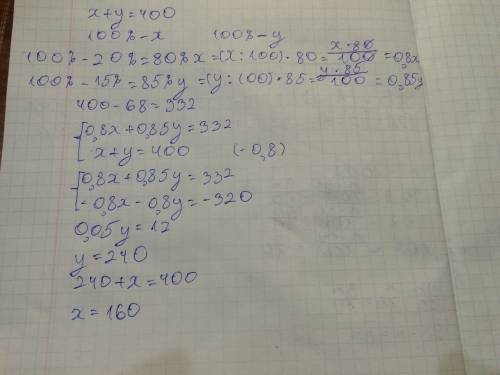 x+y=400
100%-x 100%-y
100%-20%=80%x=(x:100)·80=x·80/100=0,8x
100%-15%=85%y=(y:100)·85=y·85/100=0,85y
400-68=332
{0,8x+0,85y=332
x+y=400 (-0,8)
{0,8x+0,85y=332
-0,8x-0,8y=-320
0,05y=12
y=240
240+x=400
x=160